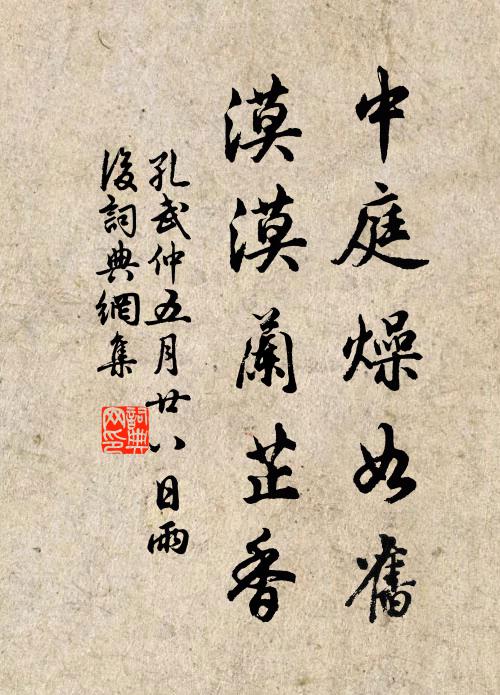 中庭燥如舊
漠漠蘭芷香
孔武仲五月廿八日雨
後詞典網集
詞典网印